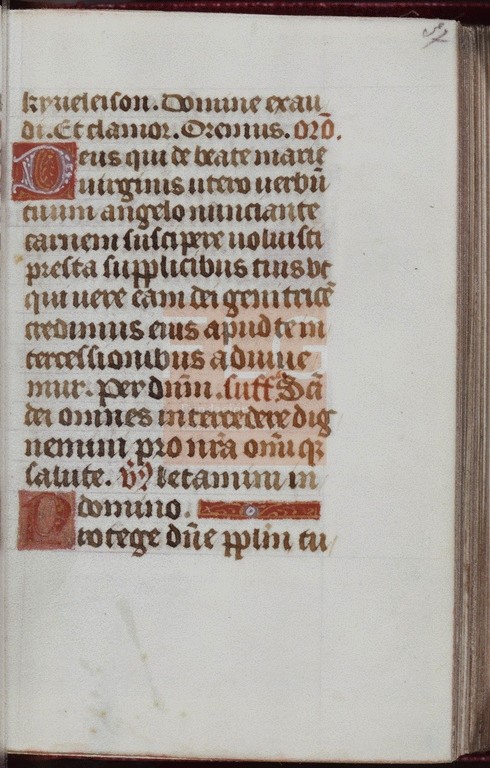 kyrieleison. Domine exau
di. Et clamor. Oremus. orō.
Deus qui de beate marie
uirginis utero uerbū
tuum angelo nunciante
carnem suscipere uoluisti
presta supplicibus tuis vt
qui uere eam dei genitricē
credimus eius apud te in
tercessionibus adiuue
mur. Per dn̄m. suff͛. Scī
dei omnes intercedere dig
nemini pro nr̄a om̄iqꝫ
salute. v̄ Letamini in
domino.
Protege dn̄e pplm tu